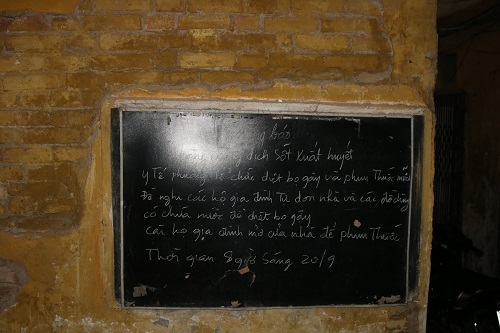 báo
dịch Sốt xuất huyết
y Tế phường tổ chức diệt bọ gậy và phun Thuốc muỗi
Đề nghị các hộ gia đình tự dọn nhà và các đồ dùng
có chứa nước để diệt bọ gậy
các hộ gia đình mở cửa nhà để phun Thuốc
Thời gian 8 giờ sáng 20/9